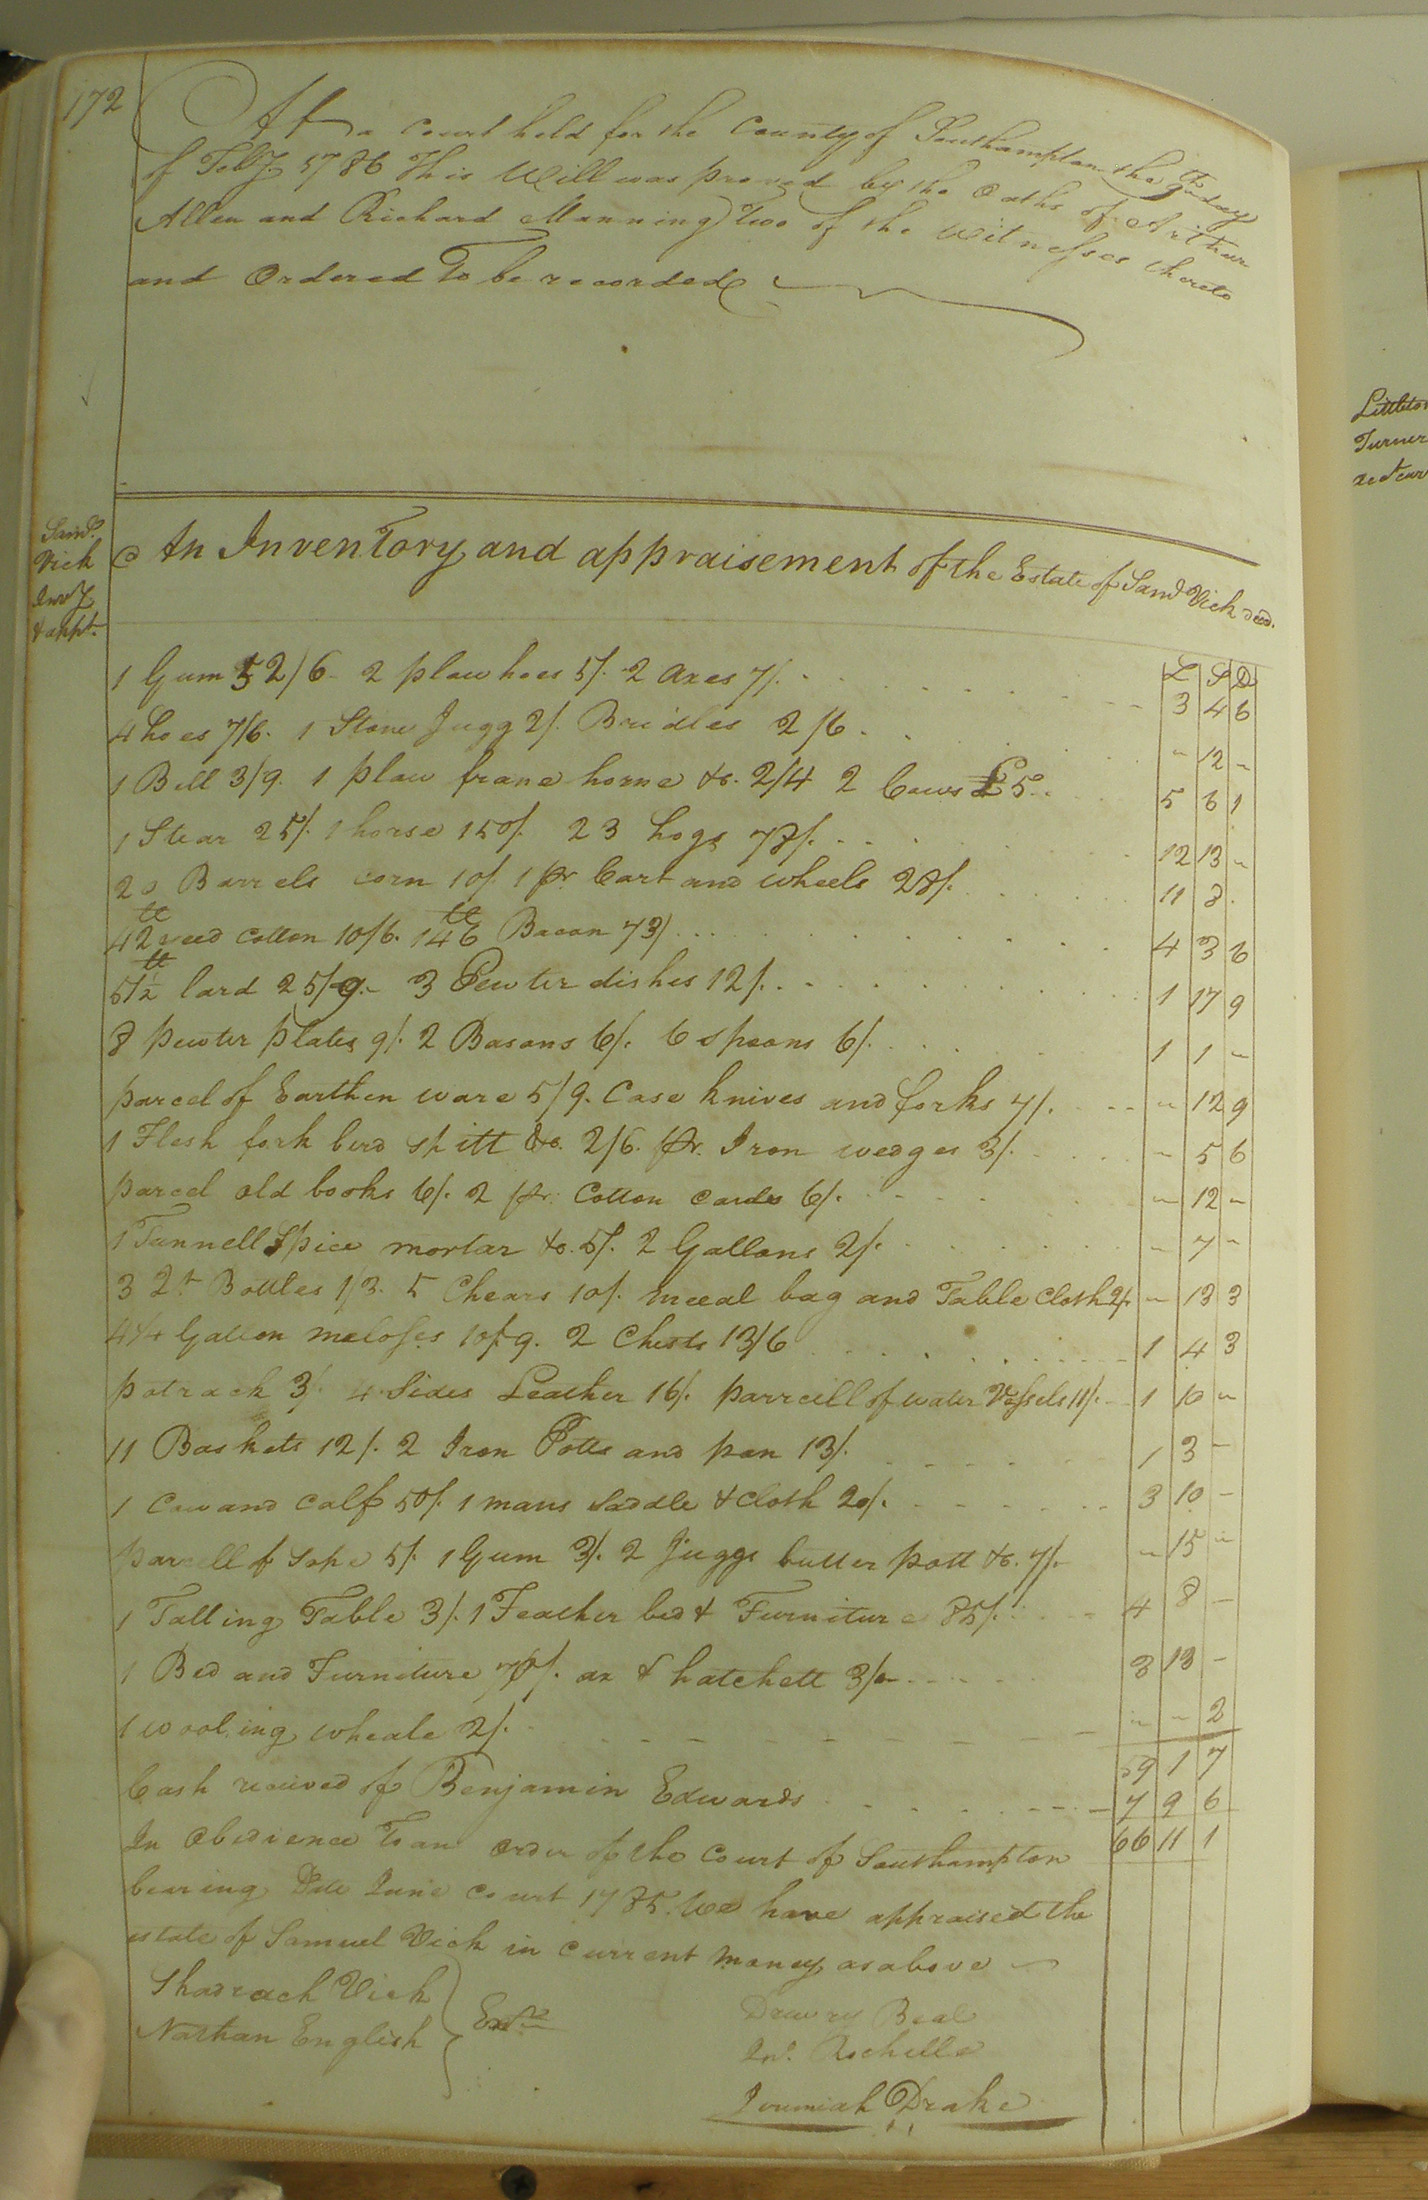 172
At a Court held for the County of Southampton the 9th day
of Feby. 1786 This Will was proved by the Oaths of Arthur
Allen and Richard Manning Two of the Witnesses thereto
and Ordered To be recorded
Saml.
Vick
Invy
& appt.
An Inventory and appraisement of the Estate of Saml Vick decd.
£ S D
1 Gum 52/6 2 plow hoes 5/. 2 axes 7/. 3 4 6
4 hoes 7/6. 1 Stone Jugg 2/. Bridles 2/6. " 12 "
1 Bell 3/9. 1 plow frane horne &c. 2/4 2 Cows £5. 5 6 1
1 Stear 25/. 1 horse 150/. 23 hogs 78/. 12 13 "
20 Barrels corn 10/. 1 pr. Cart and wheels 28/. 11 8.
42 tt seed cotton 10/6. 146 tt Bacon 73/ 4 3 6
51½ tt lard 25/9. 3 Pewter dishes 12/. 1 17 9
8 pewter plates 9/. 2 Basons 6/. 6 spoons 6/. 1 1 "
parcel of Earthen ware 5/9. Case knives and forks 7/. " 12 9
1 Flesh fork bird spitt &c. 2/6. pr. Iron wedges 3/. " 5 6
parcel old books 6/. 2 pr. Cotton cards 6/. " 12 "
1 Tunnell Spice mortar &c. 5/. 2 Gallons 2/. " 7 "
3 2t Bottles 1/3. 5 Chears 10/. meeal bag and Table Cloth 2/. " 13 3
4¼ Gallon meloses 10/9. 2 Chests 13/6 1 4 3
potrack 3/. 4 Sides Leather 16/. parrcell of water Vessels 11/. 1 10 "
11 Baskets 12/. 2 Iron Potts and pan 13/. 1 3 "
1 Cow and Calf 50/. 1 mans Saddle & cloth 20/. 3 10 "
parcell of Sope 5/. 1 Gum 3/. 2 Juggs butter pott &c. 7/. " 15 "
1 Falling Table 3/. 1 Feather bed & Furniture 85/. 4 8 "
1 Bed and Furniture 70/. ax & hatchett 3/ 3 13 "
1 wooling wheale 2/. " " 2
59 1 7
Cash received of Benjamin Edwards 7 9 6
66 11 1
In Obedience To an order of the Court of Southampton
bearing Date June court 1785. We have appraised the
estate of Samuel Vick in current money as above
Shadrach Vick
Nathan English
Exrs
Drewry Beal
Jno. Rochelle
Jeremiah Drake
Littleton
Turner